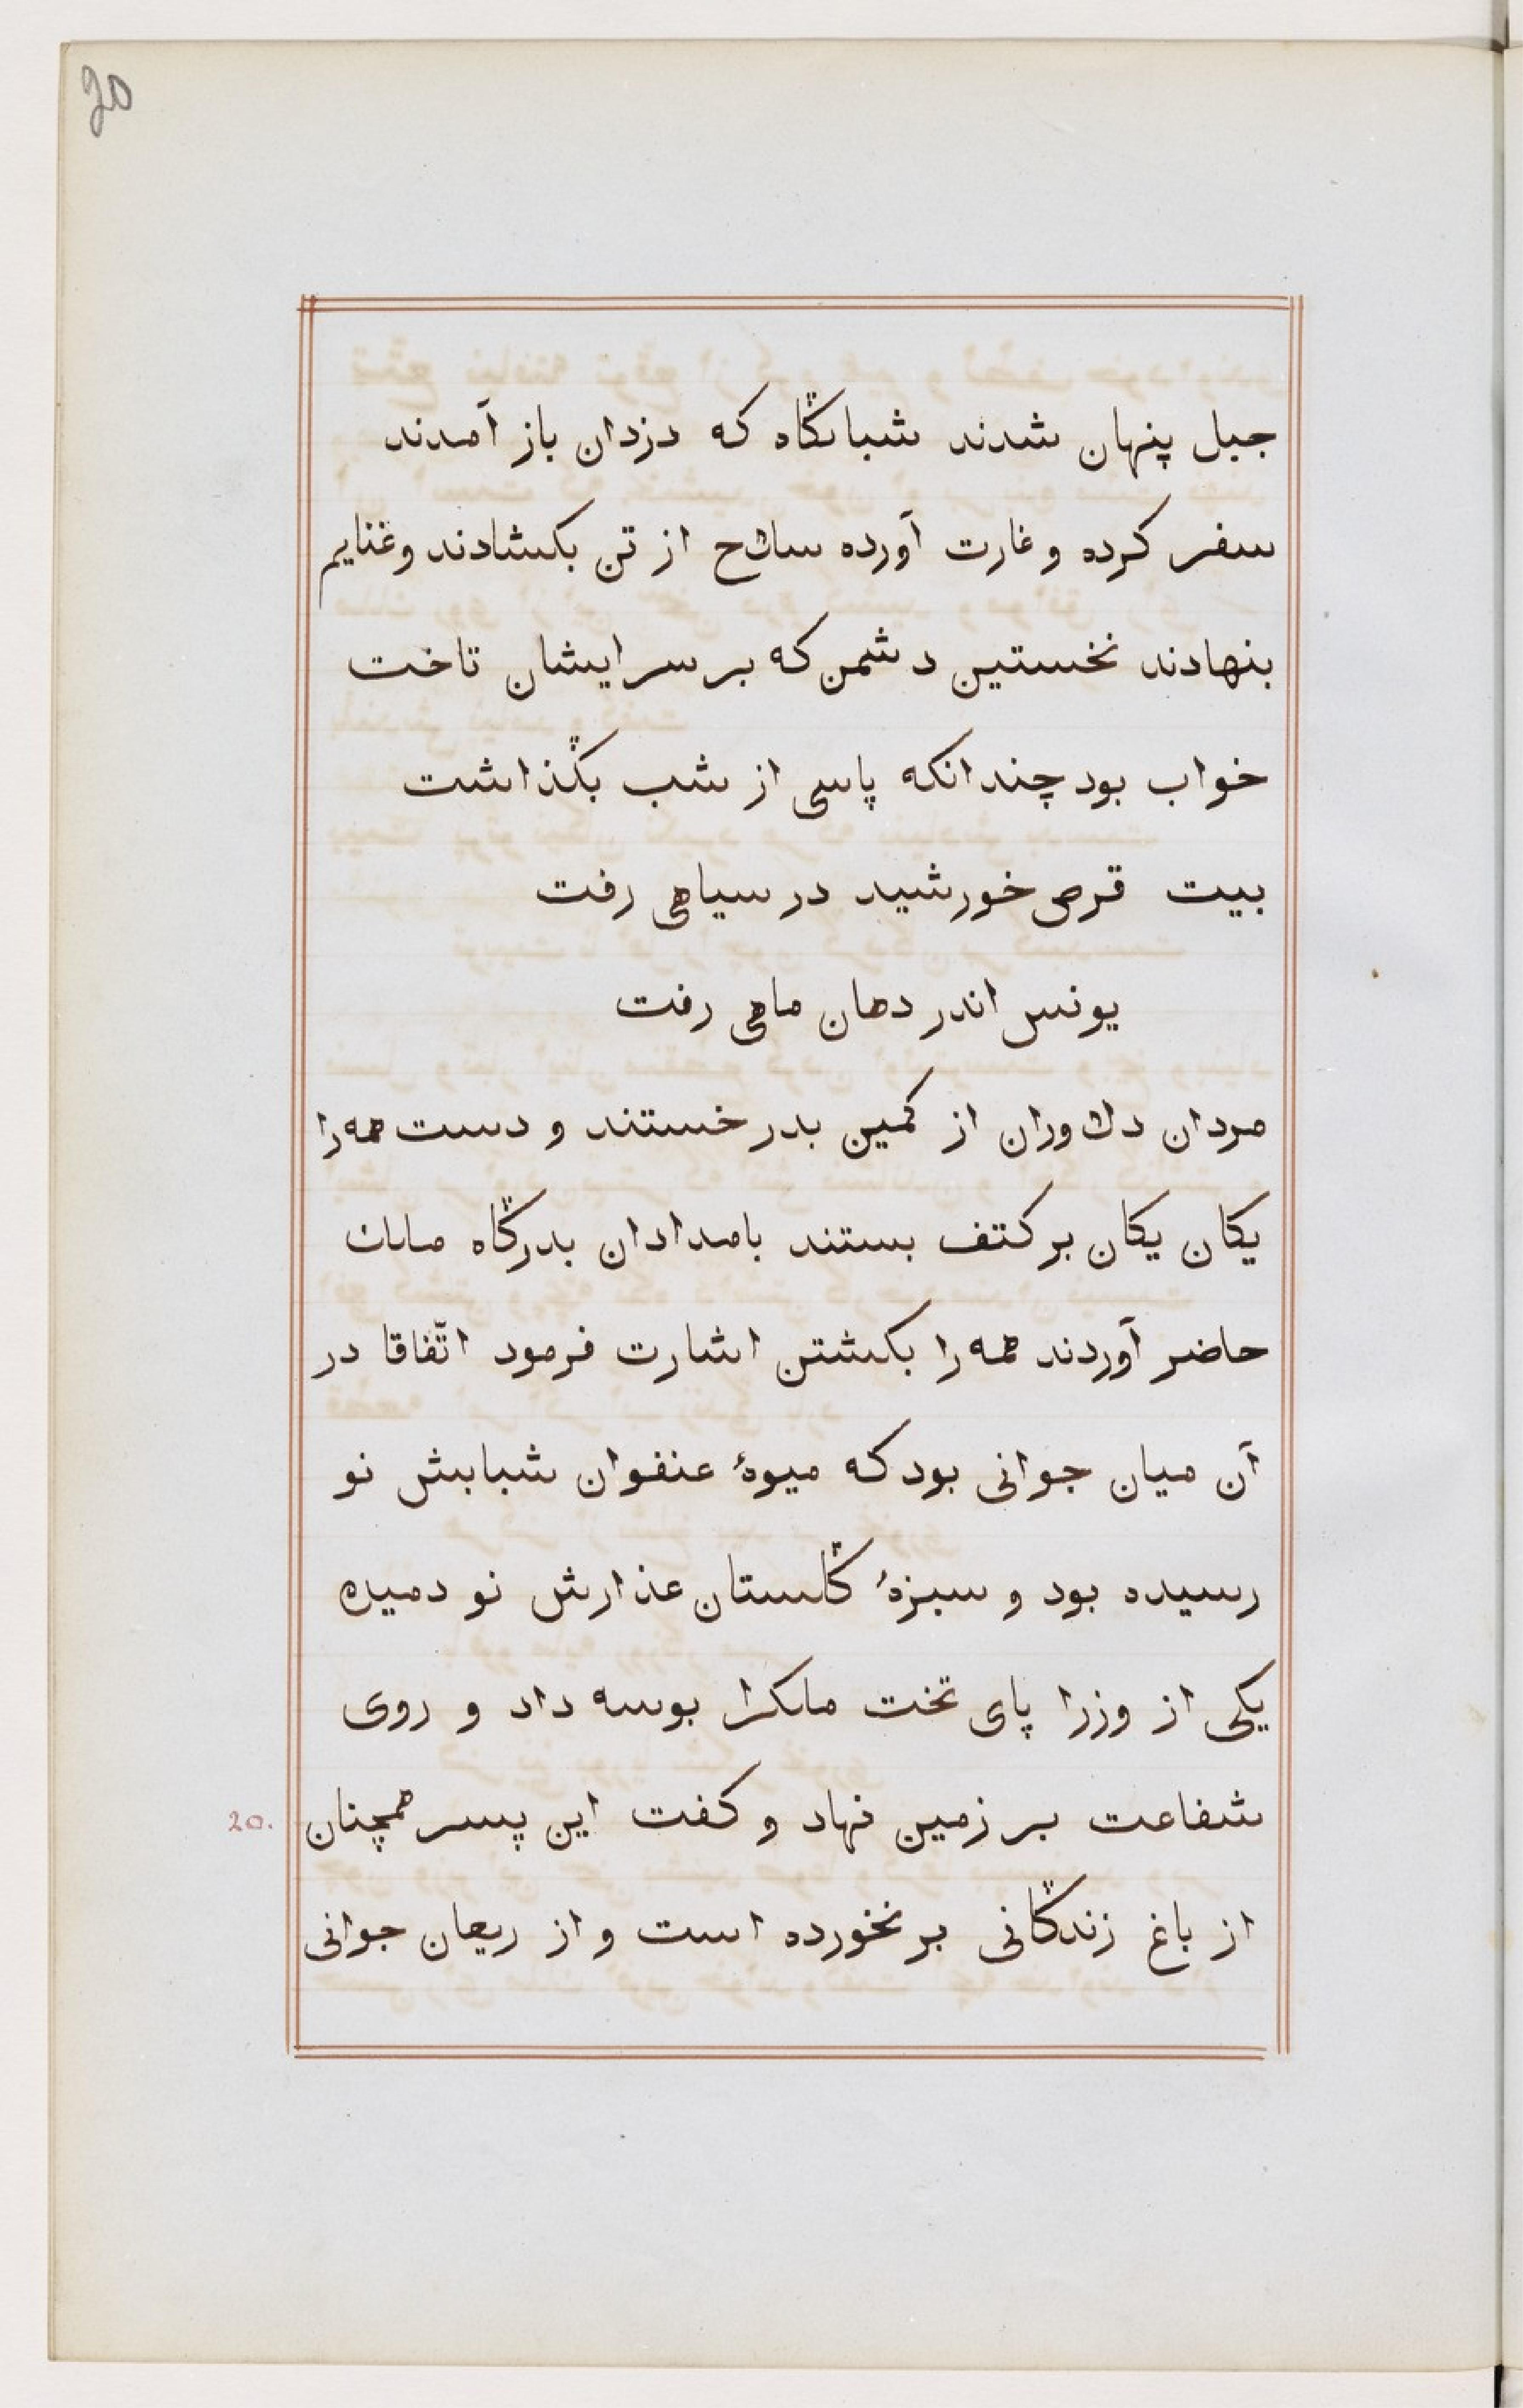 20
جبل پنهان شدند شبانگاه که دزدان باز آمدند
سفر کرده و غارت آورده سلاح از تن بکشادند و غنایم
بنهادند نخستین دشمن که بر سر ایشان تاخت
خواب بود چندانکه پاسی از شب بگذاشت
بیت قرص خورشید در سیاهی رفت
یونس اندر دهان ماهی رفت
مردان دلاوران از کمین بدر خستند و دست همه را
یکان یکان بر کتف بستند بامدادان بدرگاه ملک
حاضر آوردند همه را بکشتن اشارت فرمود اتّفاقا در
آن میان جوانی بود که میوهٔ عنفوان شبابش نو
رسیده بود و سبزهٔ گلستان عذارش نو دمیده
یکی از وزرا پای تخت ملکرا بوسه داد و روی
شفاعت بر زمین نهاد و کفت این پسر همچنان
20.
از باغ زندگانی بر نخورده است و از ریعان جوانی